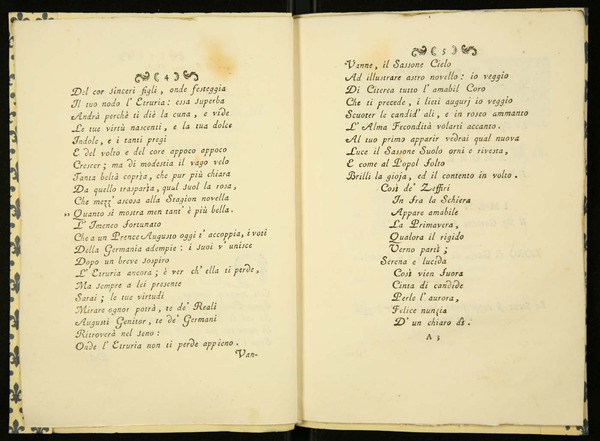 ( 4 )
Del cor sinceri figli, onde festeggia
Il tuo nodo l' Etruria: essa superba
Andrà perchè ti diè la cuna, e vide
Le tue virtù nascenti, e la tua dolce
Indole, e i tanti pregi
E del volto e del core appoco appoco
Crescer; ma di modestia il vago velo
Tanta beltà coprìa, che pur più chiara
Da quello trasparìa, qual suol la rosa,
Che mezz' ascosa alla Stagion novella
,, Quanto si mostra men tant' è più bella.
L' Imeneo fortunato
Che a un Prence Augusto oggi t' accoppia, i voti
Della Germania adempie: i suoi v' unisce
Dopo un breve sospiro
L' Etruria ancora; è ver ch' ella ti perde,
Ma sempre a lei presente
Sarai; le tue virtudi
Mirare ognor potrà, te de' Reali
Augusti Genitor, te de' Germani
Ritroverà nel seno:
Onde l' Etruria non ti perde appieno.
Van-
( 5 )
Vanne, il Sassone Cielo
Ad illustrare astro novello: io veggio
Di Citerea tutto l' amabil Coro
Che ti precede, i lieti augurj io veggio
Scuoter le candid' ali, e in roseo ammanto
L' Alma Fecondità volarti accanto.
Al tuo primo apparir vedrai qual nuova
Luce il Sassone Suolo orni e rivesta,
E come al Popol folto
Brilli la gioja, ed il contento in volto.
Così de' Zeffiri
In fra la Schiera
Appare amabile
La Primavera,
Qualora il rigido
Verno partì;
Serena e lucida
Così vien fuora
Cinta di candide
Perle l' aurora,
Felice nunzia
D' un chiaro dì.
A 3